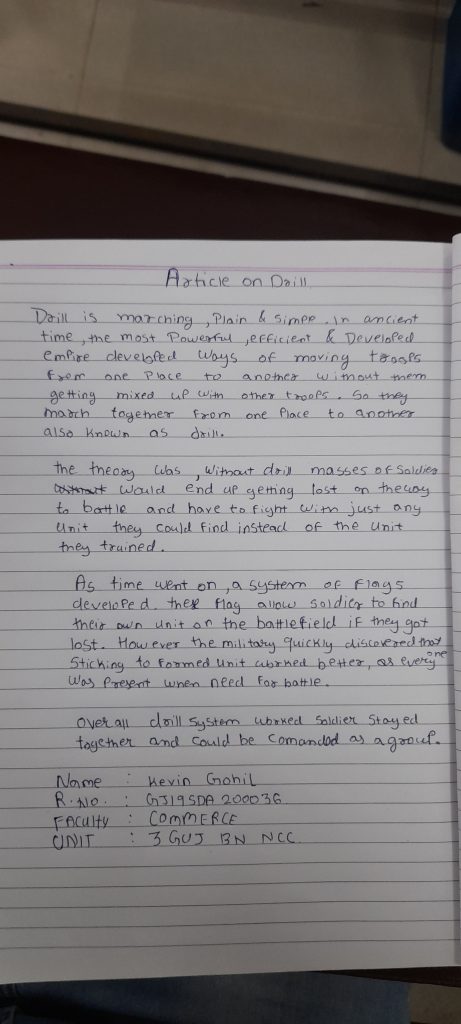 Article on Drill
Drill is marching, Plain & Simpe. In ancient
time, the most Powerful, efficient & Developed
empire developed ways of moving troops
from one Place to another without them
getting mixed up with other troops. So they
march together from one place to another
also known as drill.
the theory was, without drill masses of Soldier
would end up getting lost on the way
to battle and have to fight with just any
Unit they could find instead of the unit
they trained.
As time went on, a system of Flags
developed. flag allow soldier to find
their own unit on the battlefield if they got
lost. However the military quickly discovered that
Sticking to formed unit worked better, as every one
was Present when need for battle.
Over all drill System worked Soldier Stayed
together and could be Comanded as a group.
Name : Kevin Gohil
R.No. : GJ19SDA 200036
FACUlty : COMMERCE
UNIT : 3 GUJ BN NCC